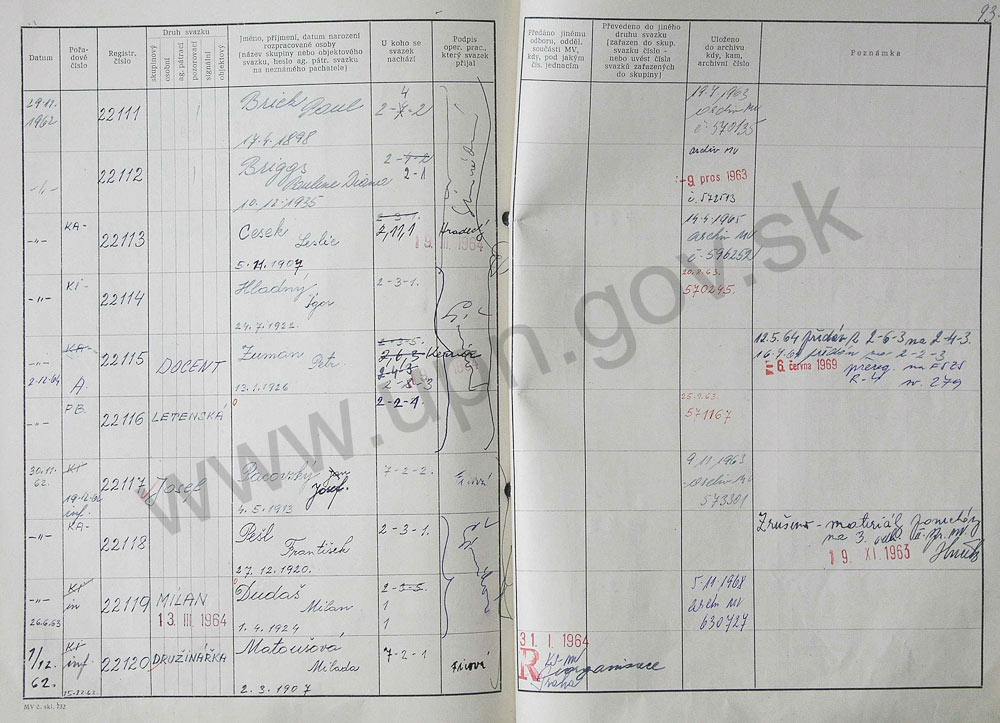 93
Datum
Pořadové číslo
Registr. číslo
Druh svazku
skupinový
osobní
ag. pátrací
pozorovací
signální
objektový
Jméno, příjmení, datum narození
rozpracované osoby
(název skupiny nebo objektového
svazku, heslo ag. pátr. svazku
na neznámého pachatele)
U koho se
svazek
nachází
Podpis
oper. prac.,
který svazek
přijal
Předáno jinému
odboru, odděl.
součásti MV,
kdy, pod jakým
čís. jednacím
Převedeno do jiného
druhu svazku
(zařazen do skup.
svazku číslo -
nebo uvést čísla
svazků zařazených
do skupiny)
Uloženo
do archivu
kdy, kam,
archivní číslo
Poznámka
29.11. 1962
22111
Brick Paul
17.4.1898
4
2-4-2
19.7.1963
archiv MV
č. 570135
-"-
22112
Briggs
Pauline Diana
10.12.1935
2-4-2
2-1
archiv MV
-9 pros. 1963
č. 572513
-"-
KA-
22113
Cesek Leslie
5.11.1907
2-3-1.
2,11,1
Hradecký
19. III. 1964
14.4.1965
archiv MV
č. 596252
-"-
KI-
22114
Hladný Igor
24.7.1922.
2-3-1.
20.8.63.
570245.
KA-
-"-
2.12.64
A.
22115
DOCENT
Zuman Petr
13.1.1926
2-3-5.
2,6,3
2-4-3
2-5-3
12.5.64 předán z 2-6-3 na 2-4-3.
předán na 2-2-3
6. června 1969
prereg. na
-"-
PB.
22116
LETENSKÁ
2-2-1.
25.9.63.
571167
30.11. 62.
KI-
19.12.62
inf.
22117
Josef
Pacovský Jan
Josef.
4.5.1913
7-2-2.
9.11.1963
archiv MV
573301
-"-
KA-
22118
Pešl František
27.12.1920.
2-3-1.
Zrušeno - materiál ponechán
na 3. odd.
19. XI. 1963
-"-
KI-
in
26.6.63
22119
MILAN
13. III. 1964
Dudáš Milan
1.4.1924
2-3-5.
1
1
5.11.1968
archiv MV
630727
1/12. 62.
KI-
inf.
15.12.62.
22120
DRUŽINÁŘKA
Matoušová
Milada
2.3.1907
7-2-1
31. I. 1964
R
KS-MV
Praha
reorganisace
MV č. skl. 732
www.upn.gov.sk